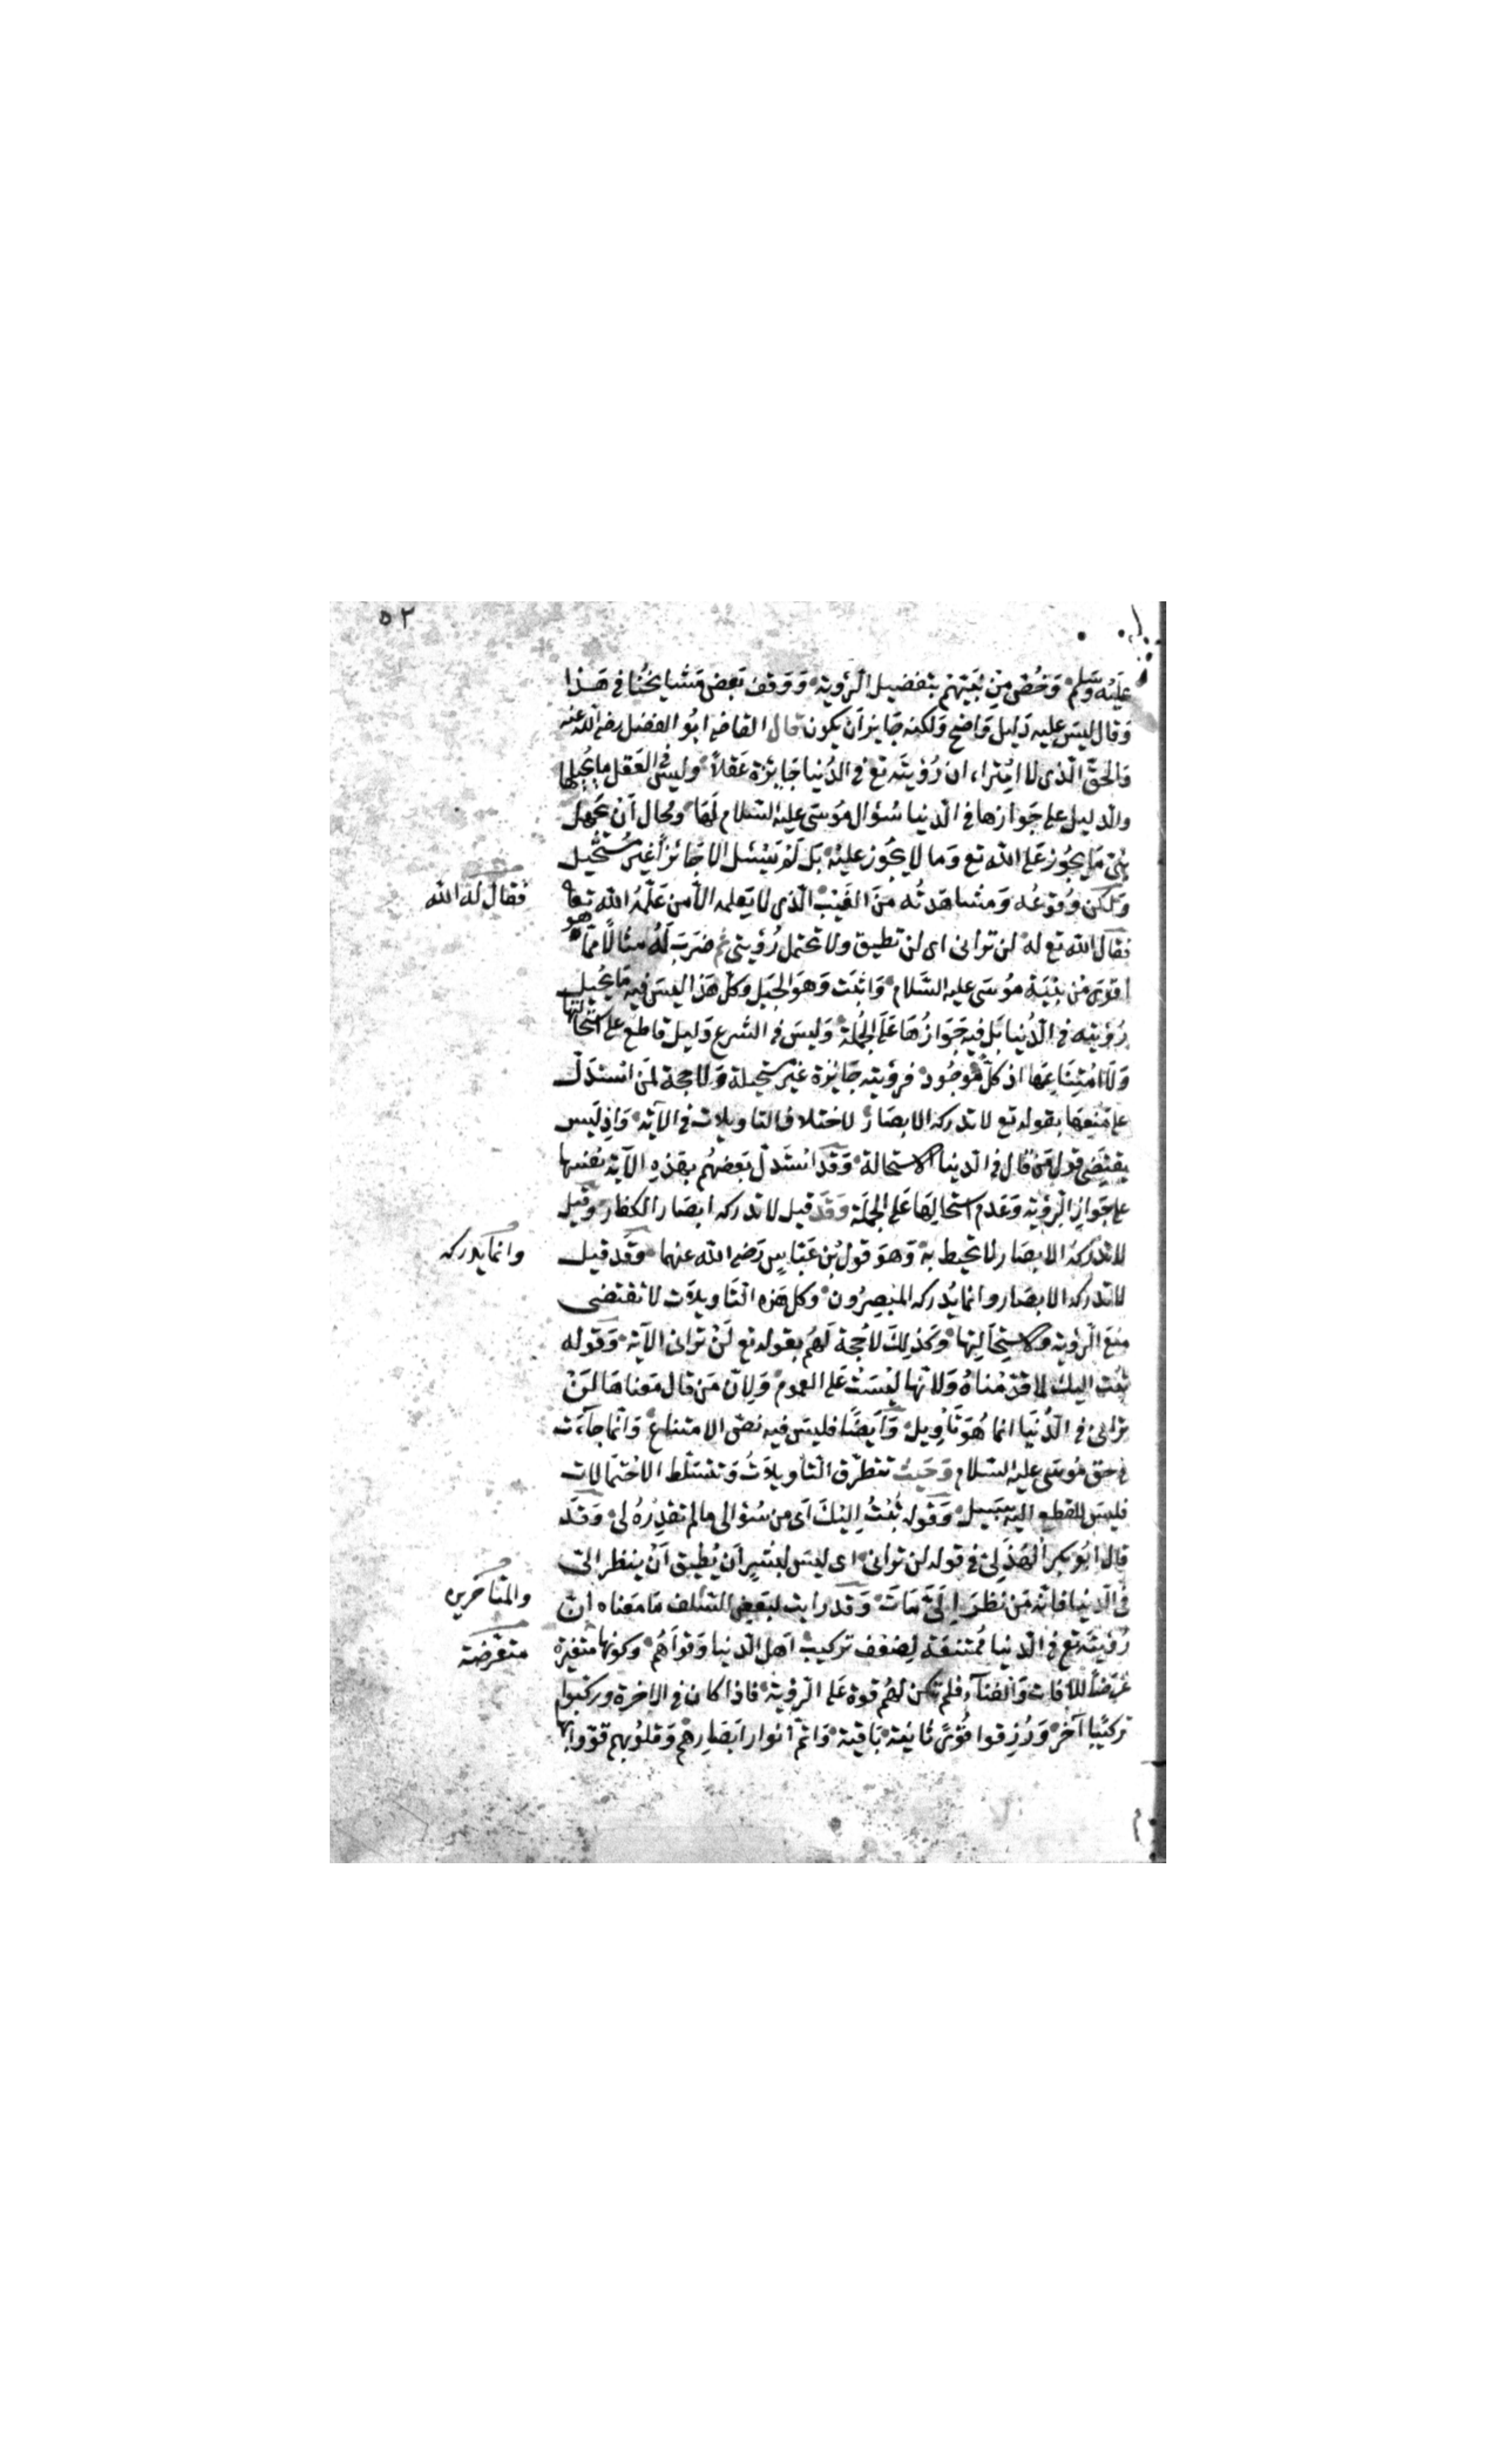 ٥٢
عليه وسلم وخص من بينهم بتفضيل الرؤية ووقف بعض مشايخنا في هذا
وقال ليس عليه دليل واضح ولكنه جايز أن يكون قال القاضي ابو الفضل رضي الله عنه
فالحق الذي لا امتراء ان رؤيته تع في الدنيا جايزة عقلاً وليس في العقل ما يحيلها
والدليل على جوازها في الدنيا سؤال موسى عليه السلام لها ومحال أن يجهل
نبي ما يجوز على الله تع وما لا يجوز عليه بل لم يسئل الا جائزاً غير مستحيل
ولكن وقوعه ومشاهدته من الغيب الذي لا يعلمه الا من علمه الله تعا
فقال له الله
فقال الله تع له لن تراني اي لن تطيق ولا تحتمل رؤيتي ثم ضرب له مثالاً مما هو
اقوى من بنية موسى عليه السلام وأثبت وهو الجبل وكل هذا ليس فيه ما يحيل
رؤيته في الدنيا بل فيه جوازها على الجملة وليس في الشرع دليل قاطع على استحالتها
ولا امتناعها اذ كل موجود فرؤيته جايزة غير مستحيلة ولا حجة لمن استدل
على منعها بقوله تع لا تدركه الابصار لاختلاف التاويلات في الآية واذ ليس
يقتضي قول من قال في الدنيا الاستحالة وقد استدل بعضهم بهذه الآية نفسها
على جواز الرؤية وعدم استحالتها على الجملة وقد قيل لا تدركه ابصار الكفار وقيل
لا تدركه الابصار لا تحيط به وهو قول بن عباس رضي الله عنهما وقد قيل
وانما يدركه
لا تدركه الابصار وانما يدركه المبصرون وكل هذه التاويلات لا تقتضي
منع الرؤية ولا استحالتها وكذلك لا حجة لهم بقوله تع لن تراني الآية وقوله
تبت اليك لما قدمناه ولانها ليست على العموم ولان من قال معناها لن
تراني في الدنيا انما هو تأويل وأيضاً فليس فيه نص الامتناع وانما جاءت
في حق موسى عليه السلام وحيث تتطرق التأويلات وتتسلط الاحتمالات
فليس للقطع اليه سبيل وقوله تبت اليك اى من سؤالي ما لم تقدره لي وقد
قال ابو بكر الهذلي في قوله لن تراني اى ليس لبشر أن يطيق أن ينظر الي
في الدنيا فانه من نظر إلي مات وقد رايت لبعض السلف ما معناه ان
والمتأخرين
رؤيته تع في الدنيا ممتنعة لضعف تركيب اهل الدنيا وقواهم وكونها متغيرة
متعرضة
غرضاً للآفات والفناء فلم تكن لهم قوة على الرؤية فاذا كان في الاخرة وركبوا
تركيبا آخر ورزقوا قوى ثابتة باقية واتم انوار ابصارهم وقلوبهم قووا بها